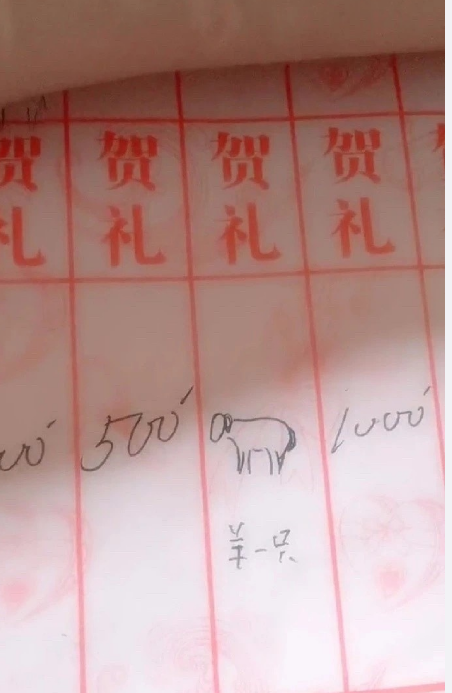 贺礼
贺礼
贺礼
贺礼
500
1000
羊一只